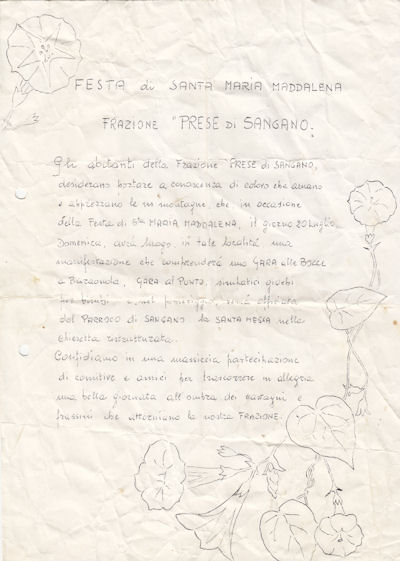 FESTA di SANTA MARIA MADDALENA
FRAZIONE "PRESE di SANGANO.
Gli abitanti della Frazione "PRESE di SANGANO,
desiderano portare a conoscenza di coloro che amano
e apprezzano le ns montagne, che in occasione
della Festa di Sta MARIA MADDALENA, il giorno 20 Luglio
Domenica, avrà luogo in tale località una
manifestazione che comprenderà una GARA alle BOCCE
a Baraonda, GARA al PUNTO, simpatici giochi
per bimbi e nel pomeriggio, verrà officiata
dal PARROCO di SANGANO la SANTA MESSA nella
chiesetta ristrutturata.
Confidiamo in una massiccia partecipazione
di comitive e amici per trascorrere in allegria
una bella giornata all'ombra dei castagni e
frassini che attorniano la nostra FRAZIONE.